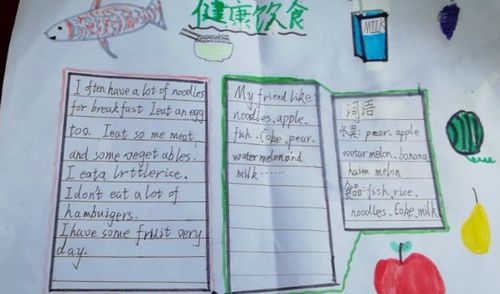 健康饮食
MILK
I often have a lot of noodles
for breakfast. I eat an egg
too. I eat so me meat
and some veget ables.
I eat a lrttlerice.
I don't eat a lot of
hambuigers.
I have some fruit very
day.
My friend like
noodles、apple.
fish、Coke、pear.
water melon and
milk ......
词语
水果: pear、apple
wetar melon、banana
haim melon
食品-fish、rice、
noodles、Coke、milk